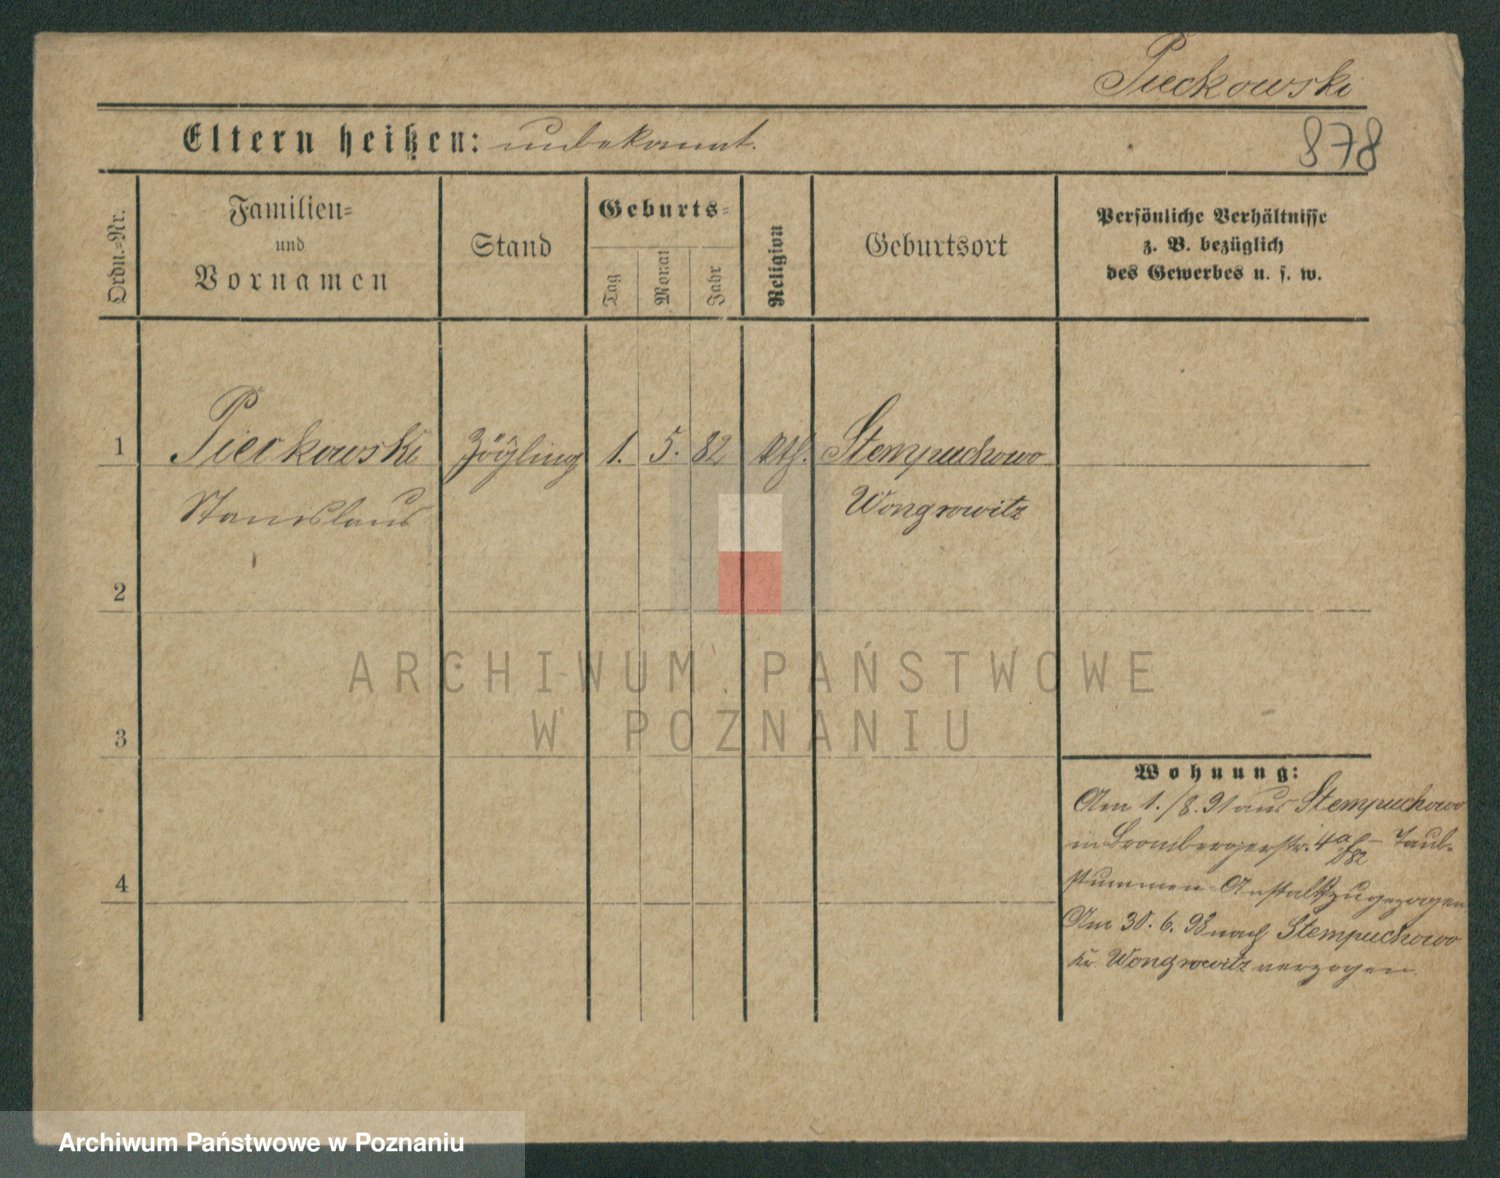 Pieckowski
Eltern heißen: unbekannt.
878
Ordn.-Nr.
Familien-
und
Vornamen
Stand
Geburts-
Tag
Monat
Jahr
Religion
Geburtsort
Persönliche Verhältnisse
z. B. bezüglich
des Gewerbes u. s. w.
1
Pieckowski Zögling 1. 5. 82 kth. Stempuchowo
Stanislaus Wongrowitz
2
ARCHIWUM PAŃSTWOWE
W POZNANIU
3
Wohnung:
Am 1./8. 91 aus Stempuchowo
in Brombergerstr. 4a Taub-
stummen-Anstalt zugezogen
4
Am 30. 6. 98 nach Stempuchowo
Kr. Wongrowitz verzogen
Archiwum Państwowe w Poznaniu